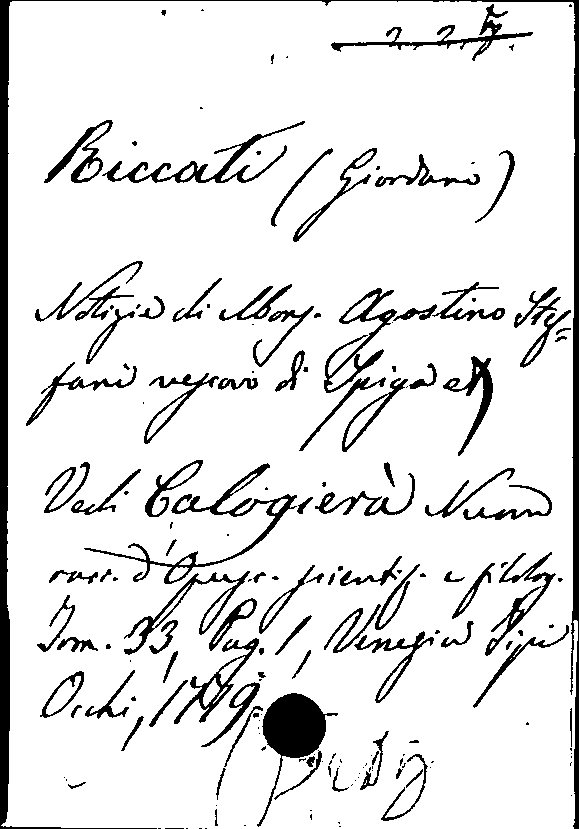 Riccati (Giordani)
Notizie di Mons. Agostino Stef=
fani vescovo di Spiga
Vedi Calogierà Nuova
racc. d'Opusc. scientif. e filolog.
Tom. 33, Pag. 1, Venezia Tipi
Occhi, 1779